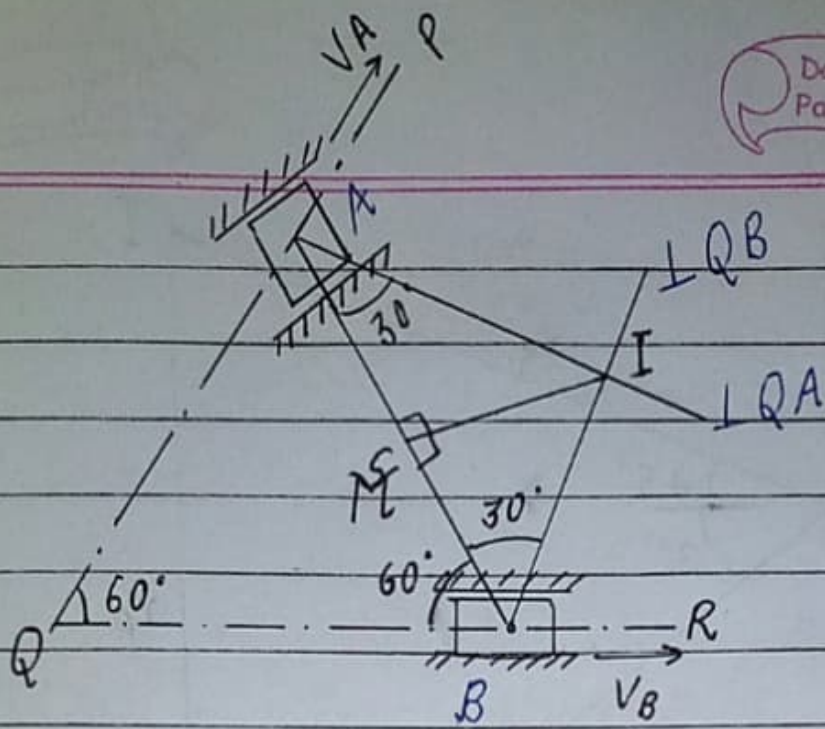 VA P
A
⊥QB
30
I
⊥QA
M
30°
60°
60°
Q
R
B
VB